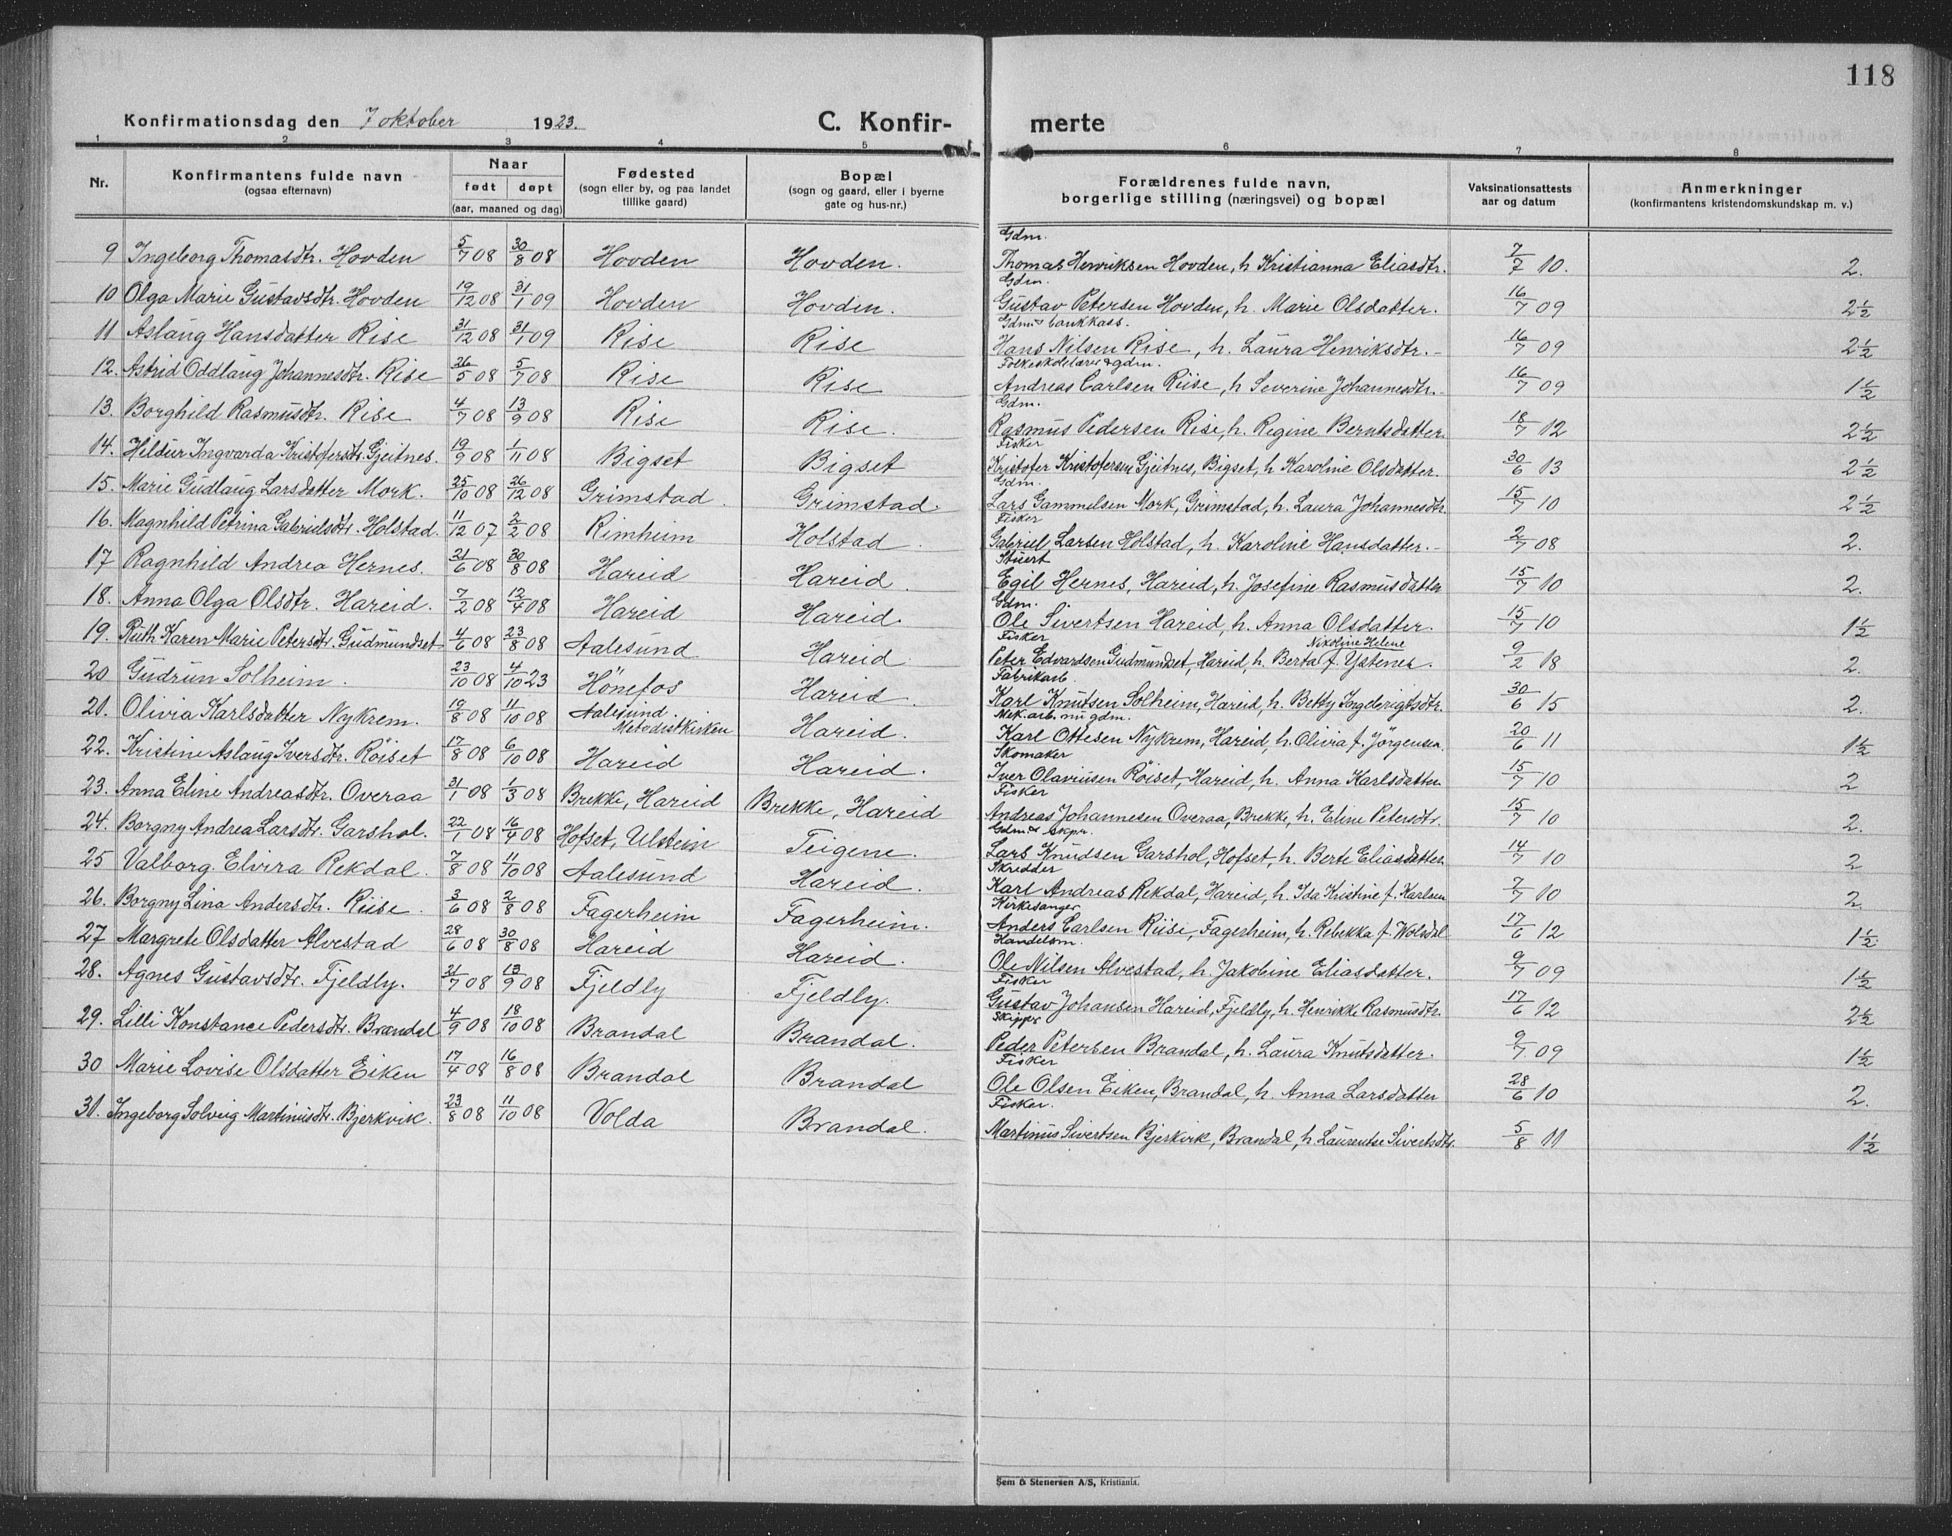 118
Konfirmationsdag den 7 oktober 1923. C. Konfir- merte
1 2 3 4 5 6 7 8
Nr. Konfirmantens fulde navn (ogsaa efternavn) Naar født døpt (aar, maaned og dag) Fødested (sogn eller by, og paa landet tillike gaard) Bopæl (sogn og gaard, eller i byerne gate og hus-nr.) Forældrenes fulde navn, borgerlige stilling (næringsvei) og bopæl Vaksinationsattests aar og datum Anmerkninger (konfirmantens kristendomskundskap m. v.)
Gdm.
9 Ingeborg Thomasdtr. Hovden 5/7 08 30/8 08 Hovden Hovden. Thomas Henriksen Hovden, h. Kristianna Eliasdtr. 7/7 10. 2.
Gdm.
10 Olga Marie Gustavsdtr. Hovden 19/12 08 31/1 09 Hovden Hovden. Gustav Petersen Hovden, h. Marie Olsdatter. 16/7 09 2½
Gdm & bankkass.
11 Aslaug Hansdatter Rise 31/12 08 31/1 09 Rise Rise Hans Nilsen Rise, h. Laura Henriksdtr. 16/7 09 2½
Folkeskolelærer & gdm.
12. Astrid Oddlaug Johannesdtr. Rise 26/5 08 5/7 08 Rise Rise Andreas Carlsen Riise, h Severine Johannesdtr. 16/7 09 1½
Gdm.
13. Borghild Rasmusdtr. Rise 4/7 08 13/9 08 Rise Rise. Rasmus Pedersen Rise, h. Regine Berntsdatter. 18/7 12 2½
Fisker
14. Hildur Ingvarda Kristofersdtr. Gjeitnes. 19/9 08 1/11 08 Bigset Bigset Kristofer Kristofersen Gjeitnes, Bigset, h Karoline Olsdatter. 30/6 13 2½
Gdm.
15. Marie Gudlaug Larsdatter Mork. 25/10 08 26/12 08 Grimstad. Grimstad. Lars Gammelsen Mork, Grimstad, h. Laura Johannesdtr. 15/7 10 2½
Fisker
16. Magnhild Petrina Gabrielsdtr. Holstad. 11/12 07 2/2 08 Rimheim Holstad. Gabriel Larsen Holstad, h. Karoline Hansdatter. 2/7 08 2.
Stuert
17 Ragnhild Andrea Hernes. 21/6 08 30/8 08 Hareid Hareid. Egil Hernes, Hareid, h. Josefine Rasmusdatter 15/7 10 2.
Gdm.
18. Anna Olga Olsdtr. Hareid. 7/2 08 12/4 08 Hareid Hareid. Ole Sivertsen Hareid, h. Anna Olsdatter. 15/7 10 1½
Fisker Nikoline Helene
19. Ruth Karen Marie Petersdtr. Gudmundset 4/6 08 23/8 08 Aalesund Hareid. Peter Edvardsen Gudmundset, Hareid, h. Berta f. Ystenes. 9/2 18 2.
Fabrikarb.
20 Gudrun Solheim. 23/10 08 4/10 23 Hönefos Hareid. Karl Knutsen Solheim, Hareid, h. Betty Ingebrigtsdtr. 30/6 15 2.
Mek. arb. nu gdm.
21. Olivia Karlsdatter Nykrem. 19/8 08 11/10 08 Aalesund. Metodistkirken Hareid. Karl Ottesen Nykrem, Hareid, h. Olivia f. Jörgensen 20/6 11 1½
Skomaker
22. Kristine Aslaug Iversdtr. Röiset 17/8 08 6/10 08 Hareid Hareid. Iver Olaviusen Röiset, Hareid, h. Anna Karlsdatter 15/7 10 2
Fisker
23. Anna Eline Andreasdtr. Overaa 31/1 08 1/3 08 Brekke, Hareid Brekke, Hareid Andreas Johannesen Overaa, Brekke, h. Eline Petersdtr. 15/7 10 2.
Gdm & skpr.
24. Borgny Andrea Larsdtr. Garshol. 22/1 08 16/4 08 Hofset, Ulstein Teigene. Lars Knudsen Garshol, Hofset, h. Berte Eliasdatter 14/7 10 2
Skrædder
25 Valborg Elvira Rekdal. 7/8 08 11/10 08 Aalesund Hareid. Karl Andreas Rekdal, Hareid, h Ida Kristine f. Karlsen 7/7 10 2.
Kirkesanger
26. Borgny Lina Andersdtr. Riise. 3/6 08 2/8 08 Fagerheim Fagerheim. Anders Carlsen Riise, Fagerheim, h. Rebekka f. Wolsdal 17/6 12 1½.
Handelsm.
27 Margrete Olsdatter Alvestad 28/6 08 30/8 08 Hareid Hareid. Ole Nilsen Alvestad, h. Jakobine Eliasdatter. 9/7 09 1½
Fisker
28. Agnes Gustavsdtr. Fjeldly. 31/7 08 13/9 08 Fjeldly Fjeldly. Gustav Johansen Hareid, Fjeldly, h Henrikke Rasmusdtr. 17/6 12 2½
Skipper
29. Lilli Konstance Pedersdtr. Brandal 4/9 08 18/10 08 Brandal Brandal. Peder Petersen Brandal, h. Laura Knutsdatter. 9/7 09 1½
Fisker
30 Marie Lovise Olsdatter Eiken 17/4 08 16/8 08 Brandal Brandal Ole Olsen Eiken, Brandal, h. Anna Larsdatter 28/6 10 2.
Fisker.
31. Ingeborg Solveig Martinusdtr. Bjerkvik. 23/8 08 11/10 08 Volda Brandal. Martinus Sivertsen Bjerkvik, Brandal, h Laurentse Sivertsdtr. 5/8 11 1½
Sem & Stenersen A/S, Kristiania.